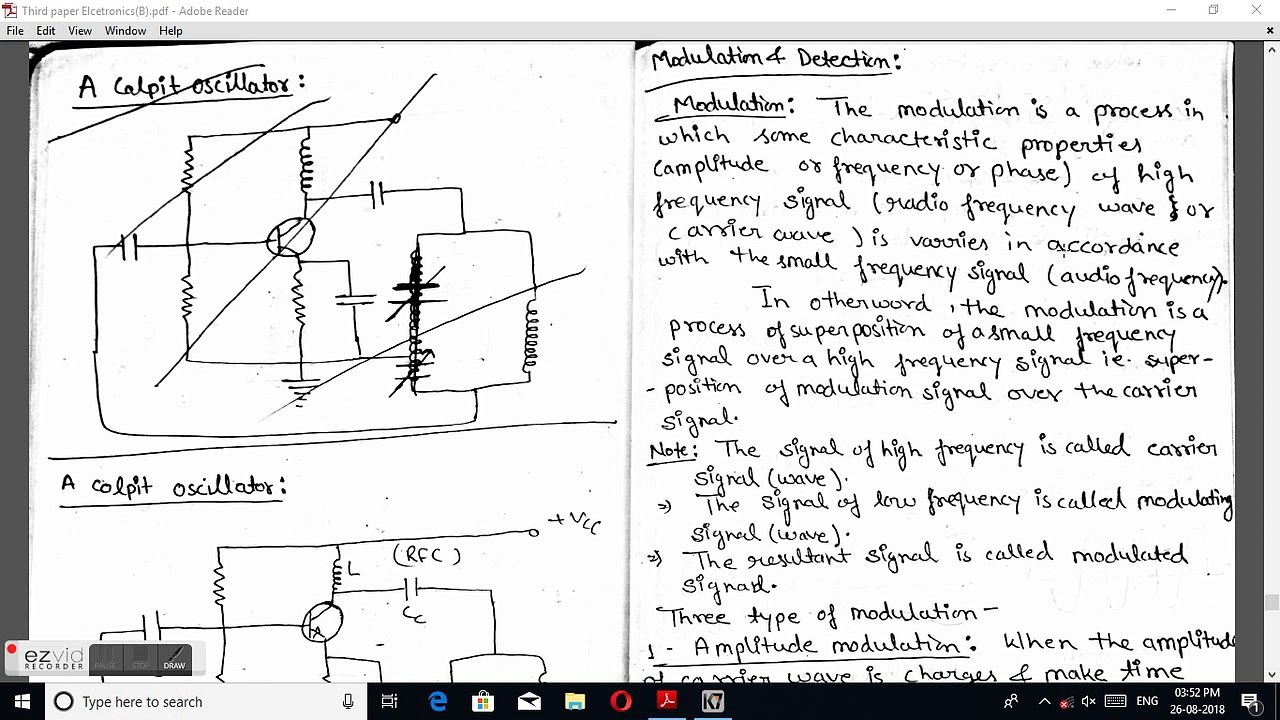 Third paper Elcetronics(B).pdf - Adobe Reader
File Edit View Window Help
A Calpit oscillator:
A colpit oscillator:
+Vcc
(RFC)
L
Cc
Modulation & Detection:
Modulation: The modulation is a process in
which some characteristic properties
(amplitude or frequency or phase) of high
frequency signal (radio frequency wave } or
carrier wave ) is varries in accordance
with the small frequency signal (audio frequency).
In otherword, the modulation is a
process of superposition of a small frequency
signal over a high frequency signal ie. super-
-position of modulation signal over the carrier
signal.
Note: The signal of high frequency is called carrier
signal (wave).
=> The signal of low frequency is called modulating
signal (wave).
=> The resultant signal is called modulated
signal.
Three type of modulation -
1 - Amplitude modulation: When the amplitude
of carrier wave is charges & make time
ezvid
RECORDER
PAUSE
STOP
DRAW
Type here to search
ENG
03:52 PM
26-08-2018
1